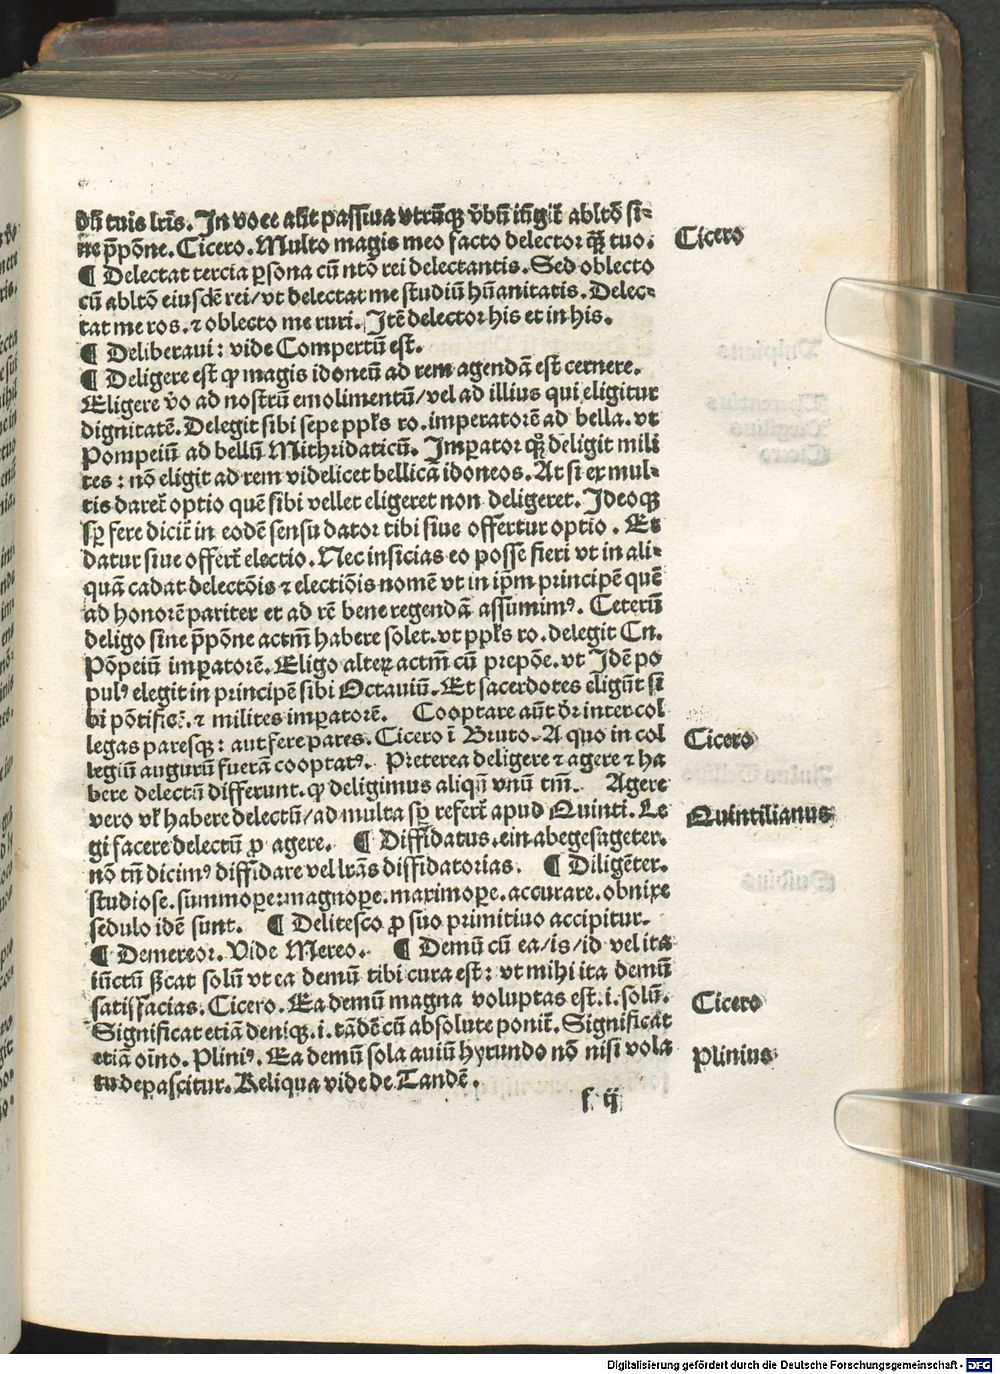 dñ tuis lr̄is. In voce aūt passiua vtrūqꝫ v̄bū iūgit̄ abltō si⸗
ne p̄pōne. Cicero. Multo magis meo facto delector qꝫ̄ tuo.
Cicero
¶ Delectat tercia ꝑsona cū ntō rei delectantis. Sed oblecto
cū abltō eiusdē rei/ vt delectat me studiū hūanitatis. Delec⸗
tat me ros. ⁊ oblecto me ruri. Itē delector his et in his.
¶ Deliberaui: vide Compertū est.
¶ Deligere est qꝫ magis idoneū ad rem agendā est cernere.
Eligere v̄o ad nostrū emolimentū/ vel ad illius qui eligitur
dignitatē. Delegit sibi sepe ppl̄s ro. imperatorē ad bella. vt
Pompeiū ad bellū Mithridaticū. Imꝑator qꝫ̄ deligit mili
tes: nō eligit ad rem videlicet bellicā idoneos. At si ex mul⸗
tis daret̄ optio quē sibi vellet eligeret non deligeret. Ideoqꝫ
sꝑ fere dicit̄ in eodē sensu dator tibi siue offertur optio. Et
datur siue offert̄ electio. Nec inficias eo posse fieri vt in ali⸗
quā cadat delectōis ⁊ electiōis nomē vt in ip̄m principē quē
ad honorē pariter et ad rē bene regendā assumimꝰ. Ceterū
deligo sine p̄pōne actm̄ habere solet. vt ppl̄s ro. delegit Cn.
Pōpeiū imꝑatorē. Eligo alterꝝ actm̄ cū prepōe. vt Idē po
pulꝰ elegit in principē sibi Octauiū. Et sacerdotes eligūt si
bi pōtificē. ⁊ milites imꝑatorē. Cooptare aūt d̄r inter col
legas paresqꝫ: aut fere pares. Cicero ī Bruto. A quo in col
Cicero
legiū augurū fuerā cooptatꝰ. Preterea deligere ⁊ agere ⁊ ha
bere delectū differunt. qꝫ deligimus aliqū vnū tm̄. Agere
vero vl̄ habere delectū/ ad multa sꝑ refert̄ apud Quinti. Le
Quintilianus
gi facere delectū ꝓ agere. ¶ Diffidatus. ein abegesageter.
nō tn̄ dicimꝰ diffidare vel lr̄as diffidatorias. ¶ Diligēter.
studiose. summoꝑe: magnoꝑe. maximoꝑe. accurare. obnixe
sedulo idē sunt. ¶ Delitesco ꝓ suo primitiuo accipitur.
¶ Demereor. Vide Mereo. ¶ Demū cū ea/ is/ id vel ita
iūctū sīcat solū vt ea demū tibi cura est: vt mihi ita demū
satisfacias. Cicero. Ea demū magna voluptas est. i. solū.
Cicero
Significat etiā deniqꝫ. i. tādē cū absolute ponit̄. Significat
etiā oīno. Pliniꝰ. Ea demū sola auiū hyrundo nō nisi vola
Plinius
tu depascitur. Reliqua vide de Tandē.
s ij
Digitalisierung gefördert durch die Deutsche Forschungsgemeinschaft - DFG